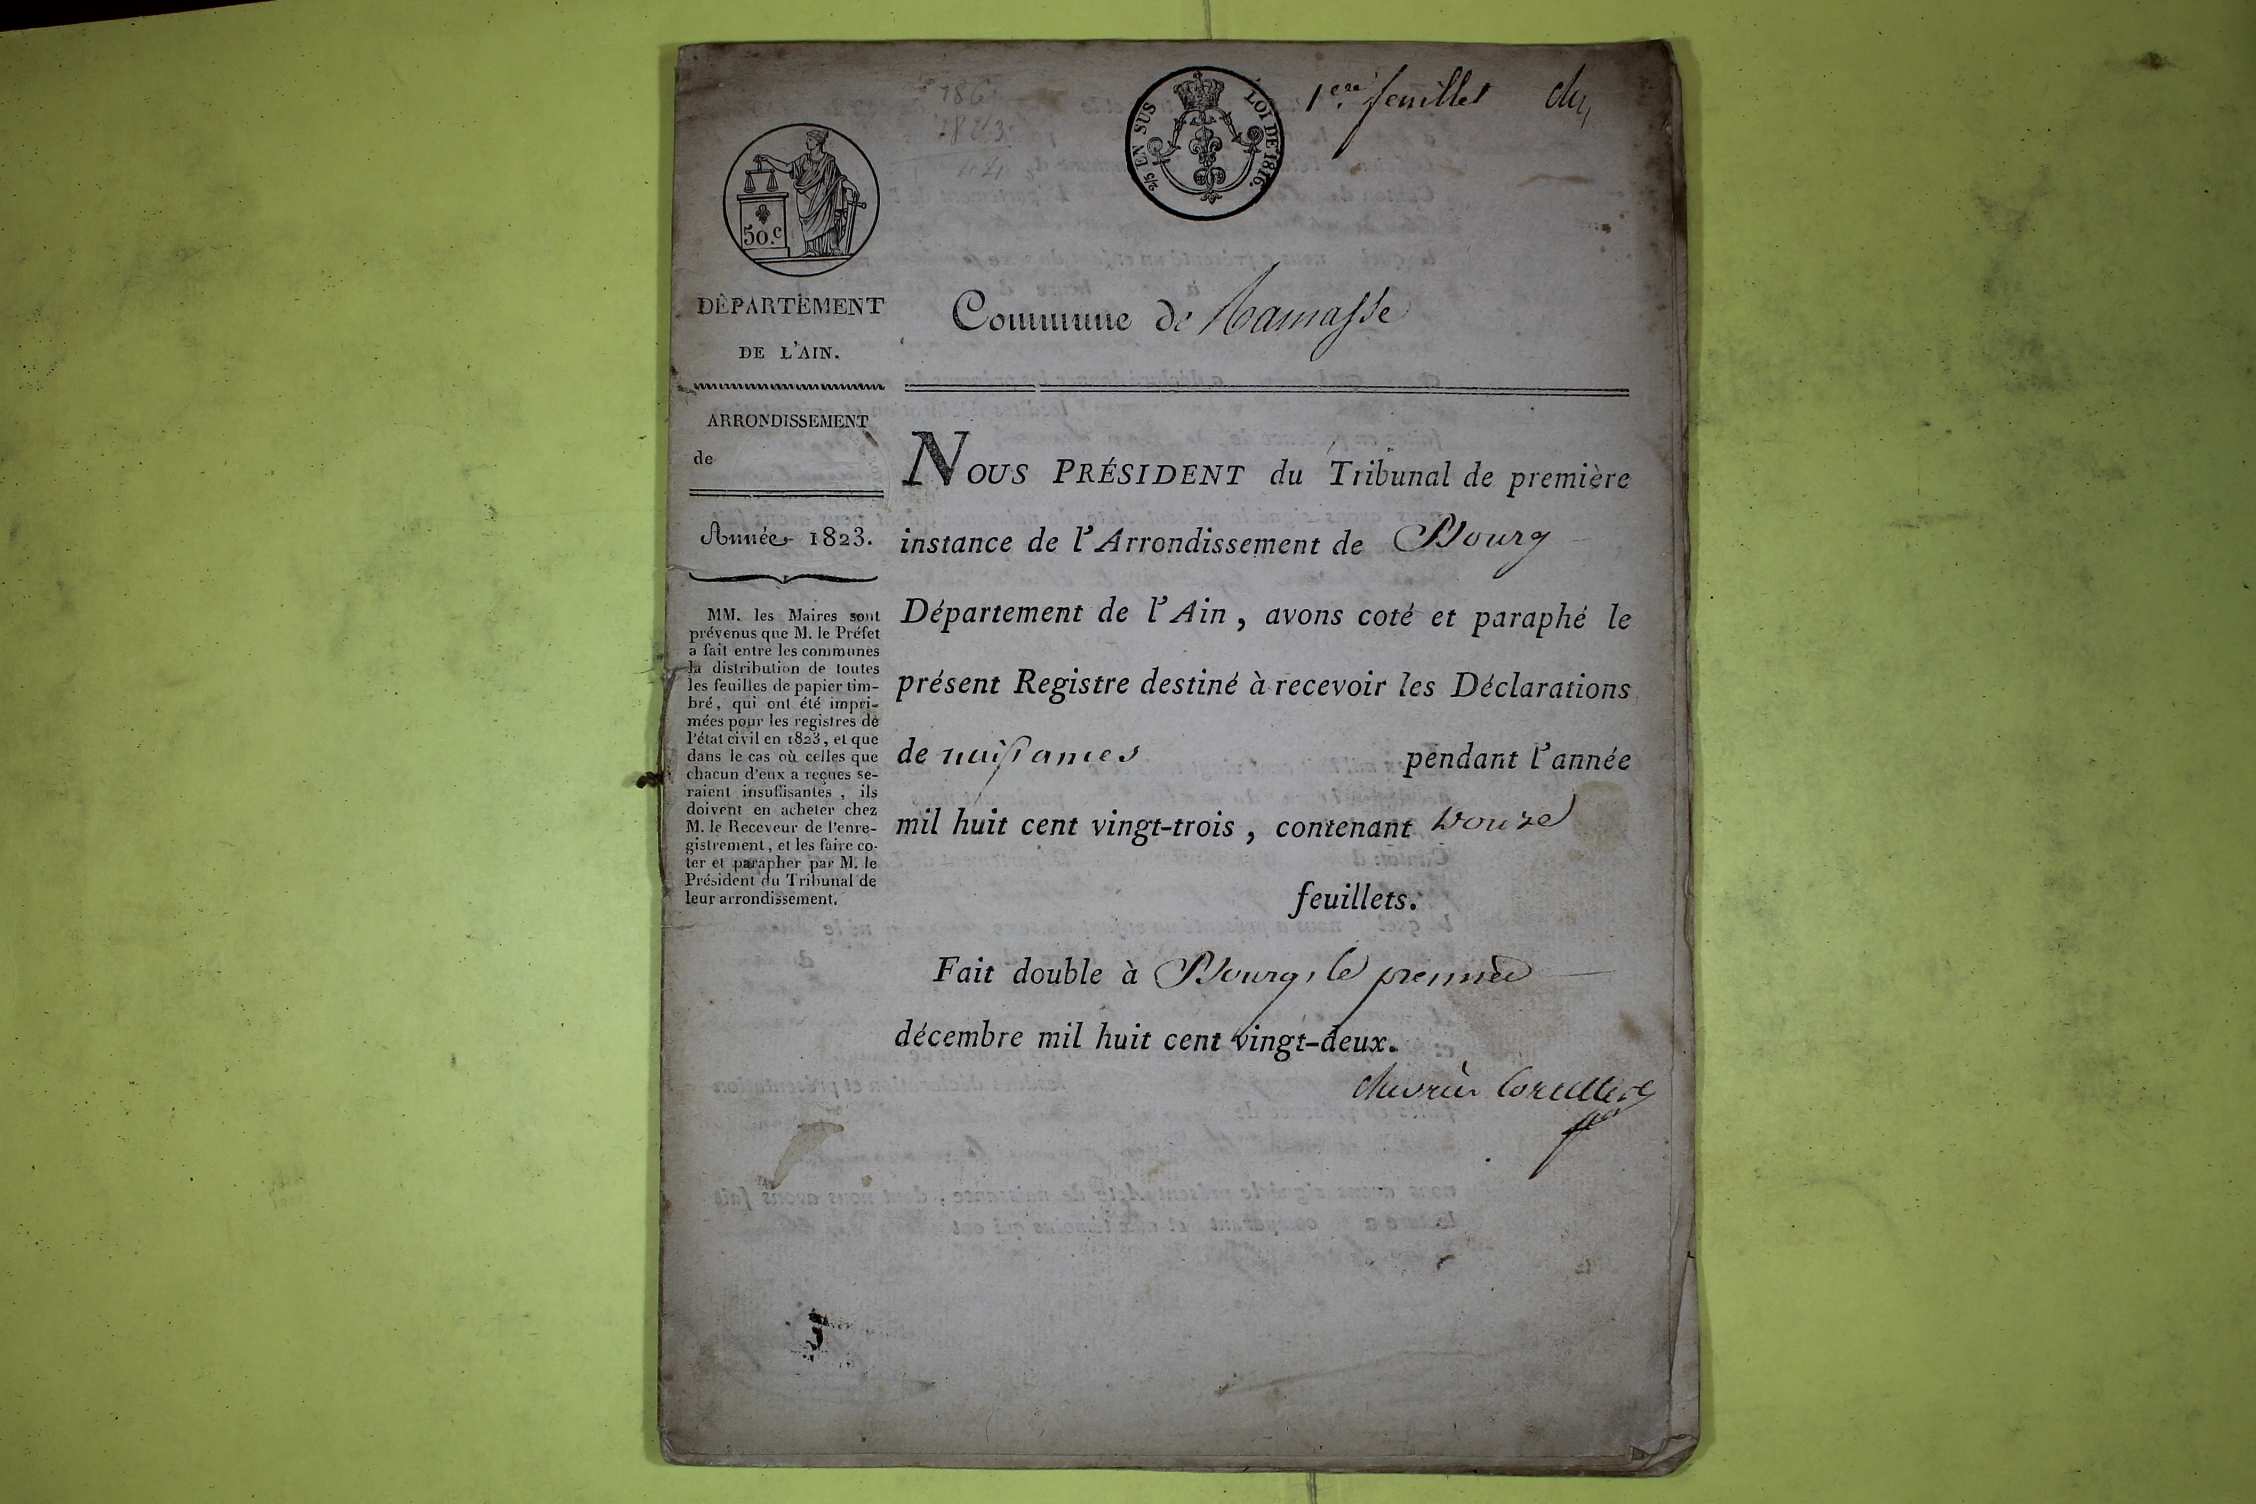 1ere feuillet
2/5 EN SUS
LOI DE 1816.
50.c
DÉPARTEMENT
DE L'AIN.
Commune de Ramasse
ARRONDISSEMENT
de
Année 1823.
MM. les Maires sont
prévenus que M. le Préfet
a fait entre les communes
la distribution de toutes
les feuilles de papier tim-
bré, qui ont été impri-
mées pour les registres de
l'état civil en 1823, et que
dans le cas où celles que
chacun d'eux a reçues se-
raient insuffisantes, ils
doivent en acheter chez
M. le Receveur de l'enre-
gistrement, et les faire co-
ter et parapher par M. le
Président du Tribunal de
leur arrondissement.
NOUS PRÉSIDENT du Tribunal de première
instance de l'Arrondissement de Bourg
Département de l'Ain, avons coté et paraphé le
présent Registre destiné à recevoir les Déclarations
de naissances pendant l'année
mil huit cent vingt-trois, contenant douze
feuillets.
Fait double à Bourg, le premier
décembre mil huit cent vingt-deux.